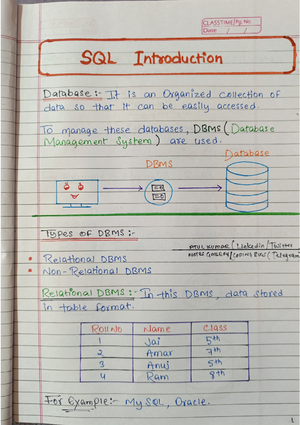 CLASSTIME Pg. No.
Date / /
SQL Introduction
Database :- It is an Organized collection of
data so that it can be easily accessed.
To manage these databases, DBMS (Database
Management System) are used.
Database
DBMS
Types of DBMS :-
Atul Kumar (LinkedIn/Twitter
Notes Gallery/Coding Bugs (Telegram)
Relational DBMS
Non-Relational DBMS
Relational DBMS :- In this DBMS, data stored
in table format.
Roll No Name Class
1 Jai 5th
2 Amar 7th
3 Anuj 5th
4 Ram 9th
For Example :- My SQL, Oracle.
1